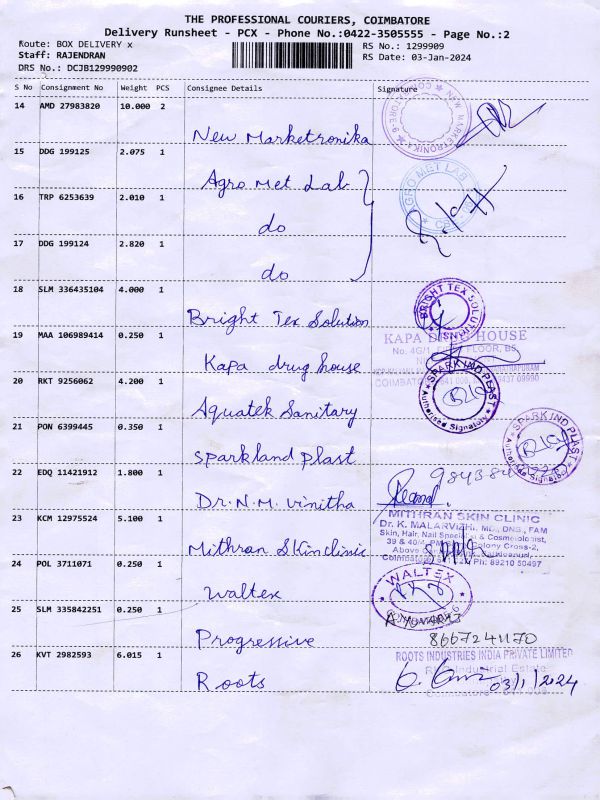 THE PROFESSIONAL COURIERS, COIMBATORE
Delivery Runsheet - PCX - Phone No.:0422-3505555 - Page No.:2
Route: BOX DELIVERY x
RS No.: 1299909
Staff: RAJENDRAN
RS Date: 03-Jan-2024
DRS No.: DCJB129990902
S No Consignment No Weight PCS Consignee Details Signature
14 AMD 27983820 10.000 2
New Marketronika
15 DDG 199125 2.075 1
Agro Met Lab
AGRO MET LAB
16 TRP 6253639 2.010 1
do
17 DDG 199124 2.820 1
do
18 SLM 336435104 4.000 1
BRIGHT TEX SOLUTION
Bright Tex Solution
19 MAA 106989414 0.250 1
KAPA DRUG HOUSE
Kapa drug house
20 RKT 9256062 4.200 1
SPARK IND PLAST
Authorised Signatory
Aquatek Sanitary
21 PON 6399445 0.350 1
SPARK IND PLAST
Authorised Signatory
Sparkland Plast
22 EDQ 11421912 1.800 1
Dr.N.M. Vinitha
23 KCM 12975524 5.100 1
MITHRAN SKIN CLINIC
Dr. K. MALARVIZHI, MD., DNB., FAM
Skin, Hair, Nail Specialist & Cosmetologist,
Mithran Skin clinic
Ph: 89210 50497
24 POL 3711071 0.250 1
WALTEX
Waltex
COIMBATORE-6
25 SLM 335842251 0.250 1
Progressive
8667241170
26 KVT 2982593 6.015 1
ROOTS INDUSTRIES INDIA PRIVATE LIMITED
Industrial Estate
Roots
03/1/2024